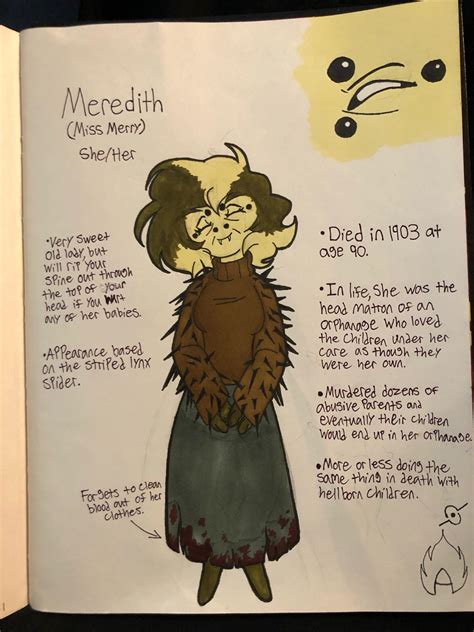 Meredith
(Miss Merry)
She/Her
•Very sweet
old lady, but
will rip your
spine out through
the top of your
head if you hurt
any of her babies.
•Appearance based
on the striped lynx
spider.
Forgets to clean
blood out of her
clothes.
•Died in 1903 at
age 90.
•In life, She was the
head matron of an
orphanage who loved
the children under her
care as though they
were her own.
•Murdered dozens of
abusive parents and
eventually their children
would end up in her orphanage.
•More or less doing the
same thing in death with
hellborn children.
A